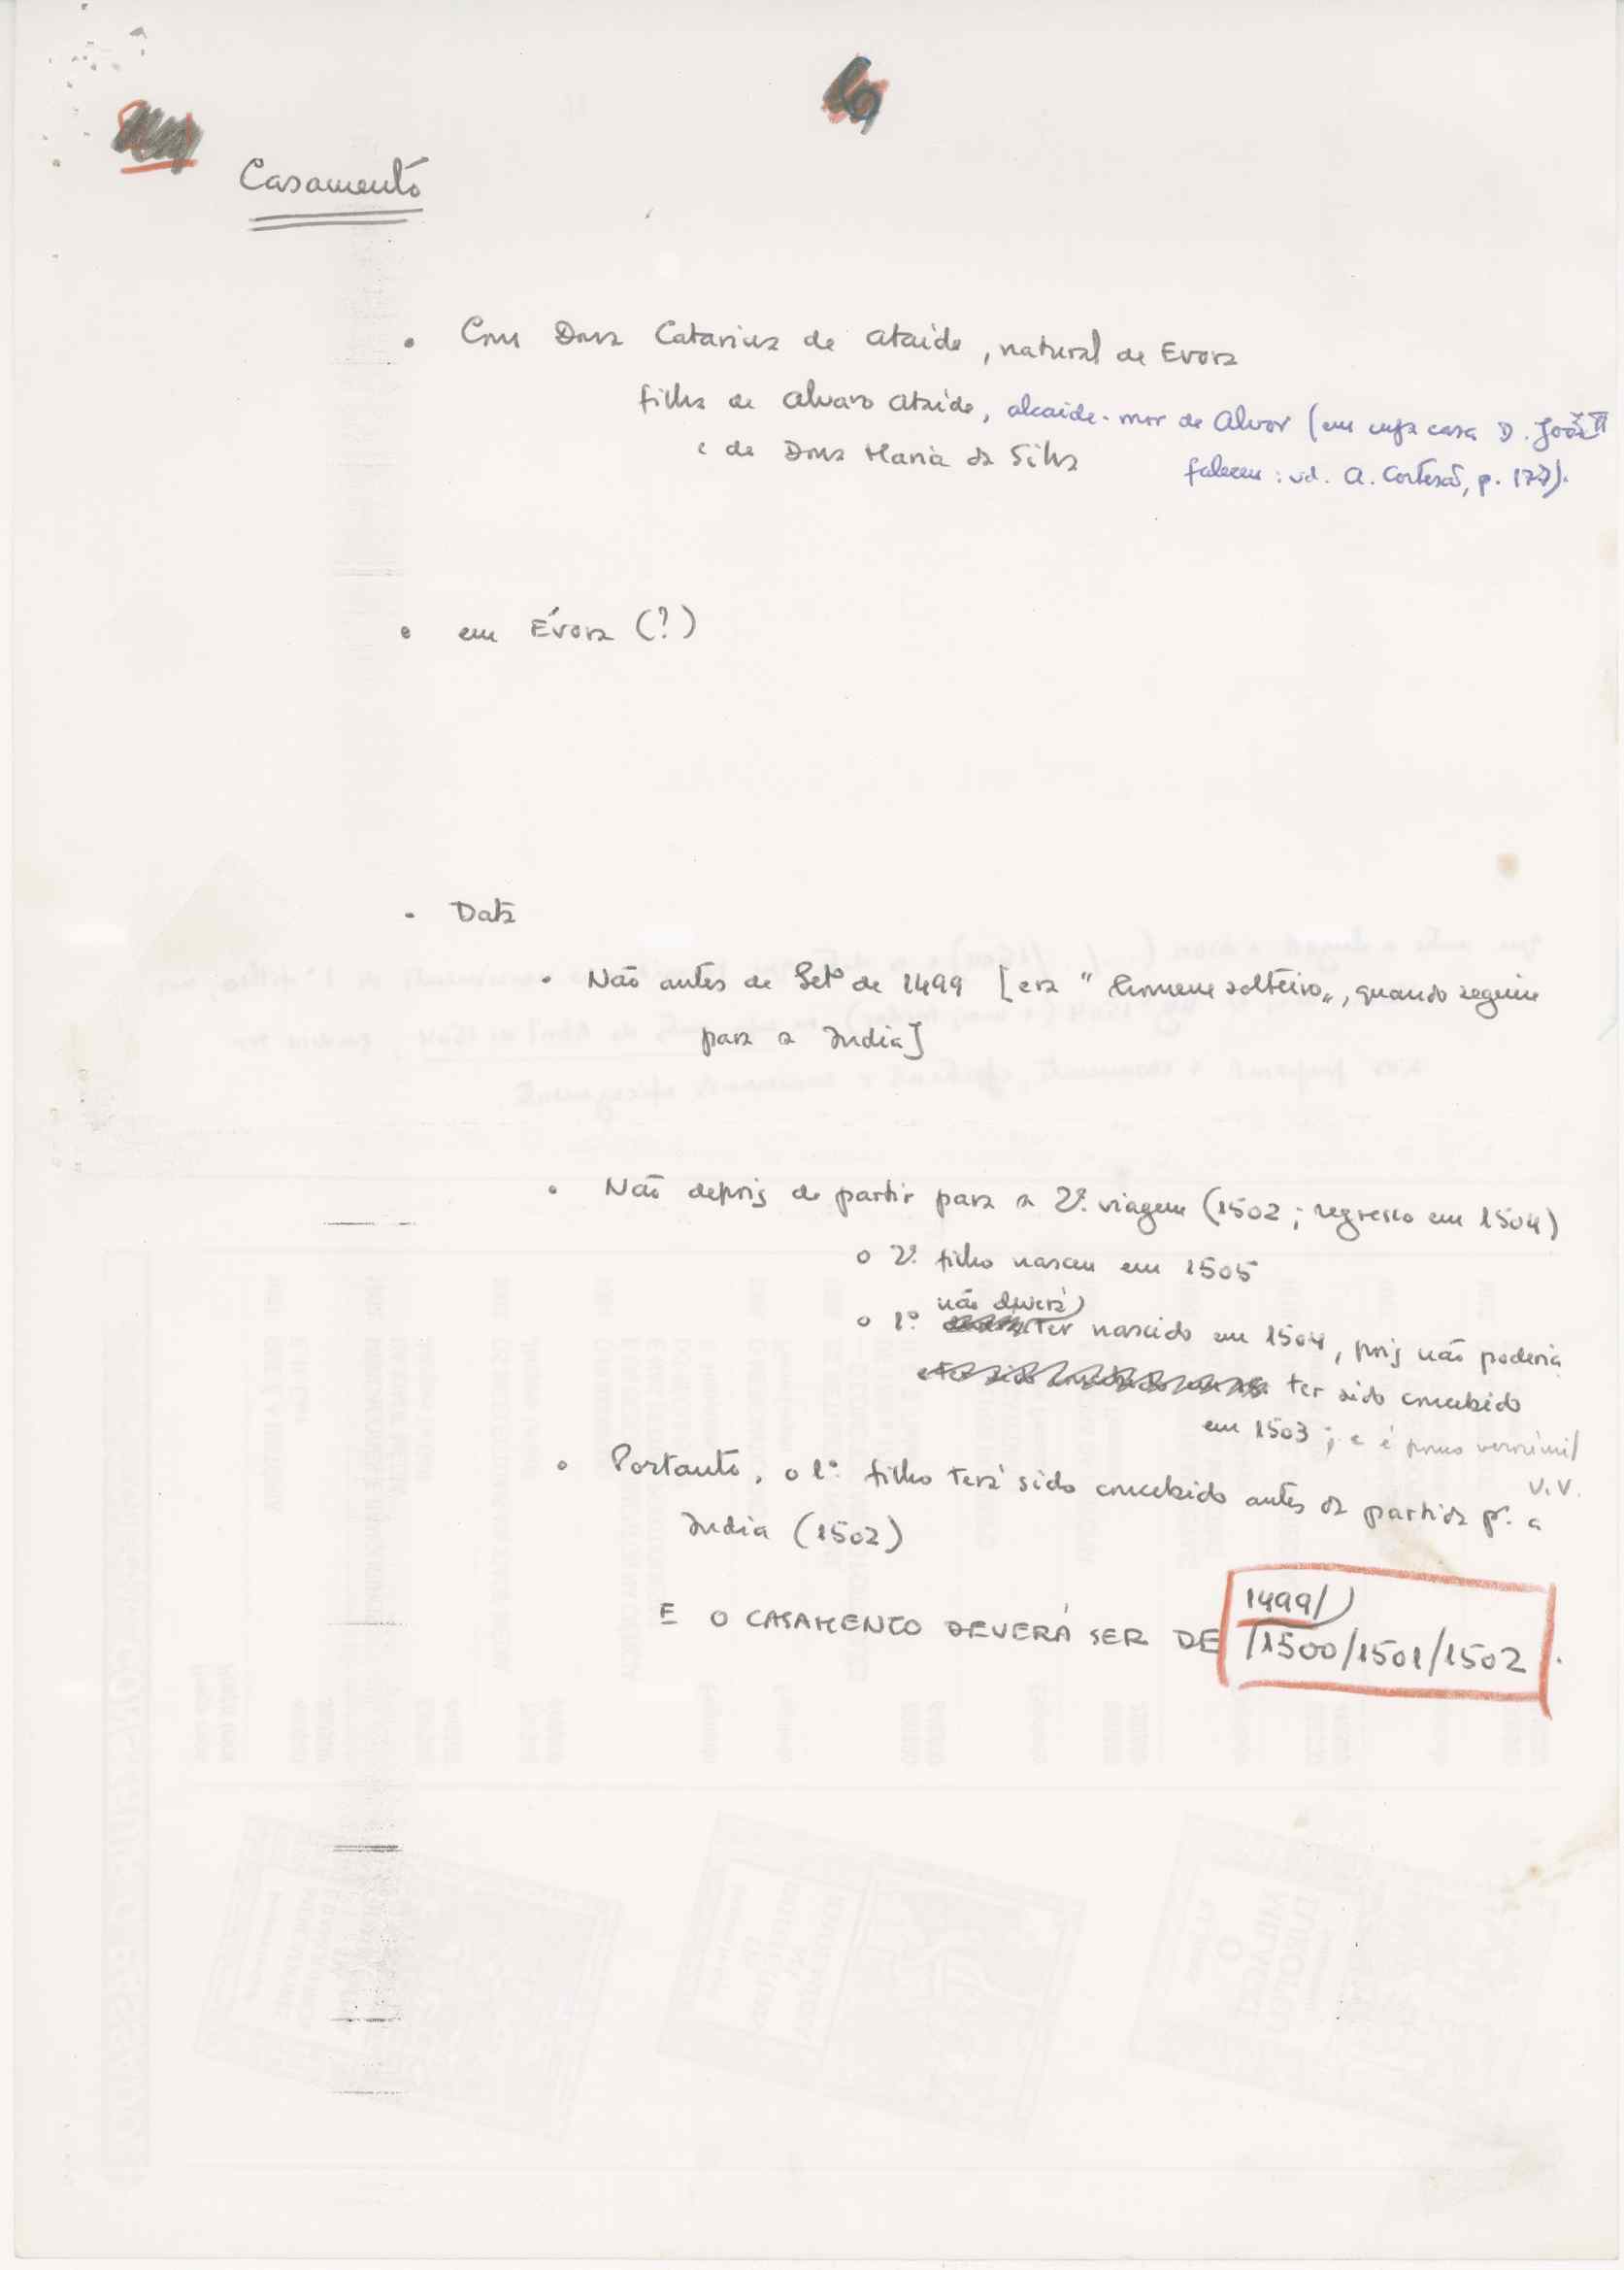 Casamento
• Com Dona Catarina de Ataíde, natural de Evora
filha de Alvaro Ataíde, alcaide-mor de Alvor (em cuja casa D. João II
e de Dona Maria da Silva faleceu: vd. A. Cortesão, p. 177).
• em Évora (?)
• Data
• Não antes de Setº de 1499 [era "homem solteiro", quando seguiu
para a India]
• Não depois de partir para a 2ª. viagem (1502; regresso em 1504)
o 2º. filho nasceu em 1505
não deverá
o 1º. ter nascido em 1504, pois não poderia
ter sido concebido
em 1503; e é pouco verosímil
v.v.
• Portanto, o 1º. filho terá sido concebido antes da partida pª. a
India (1502)
1499/
E O CASAMENTO DEVERÁ SER DE /1500/1501/1502.